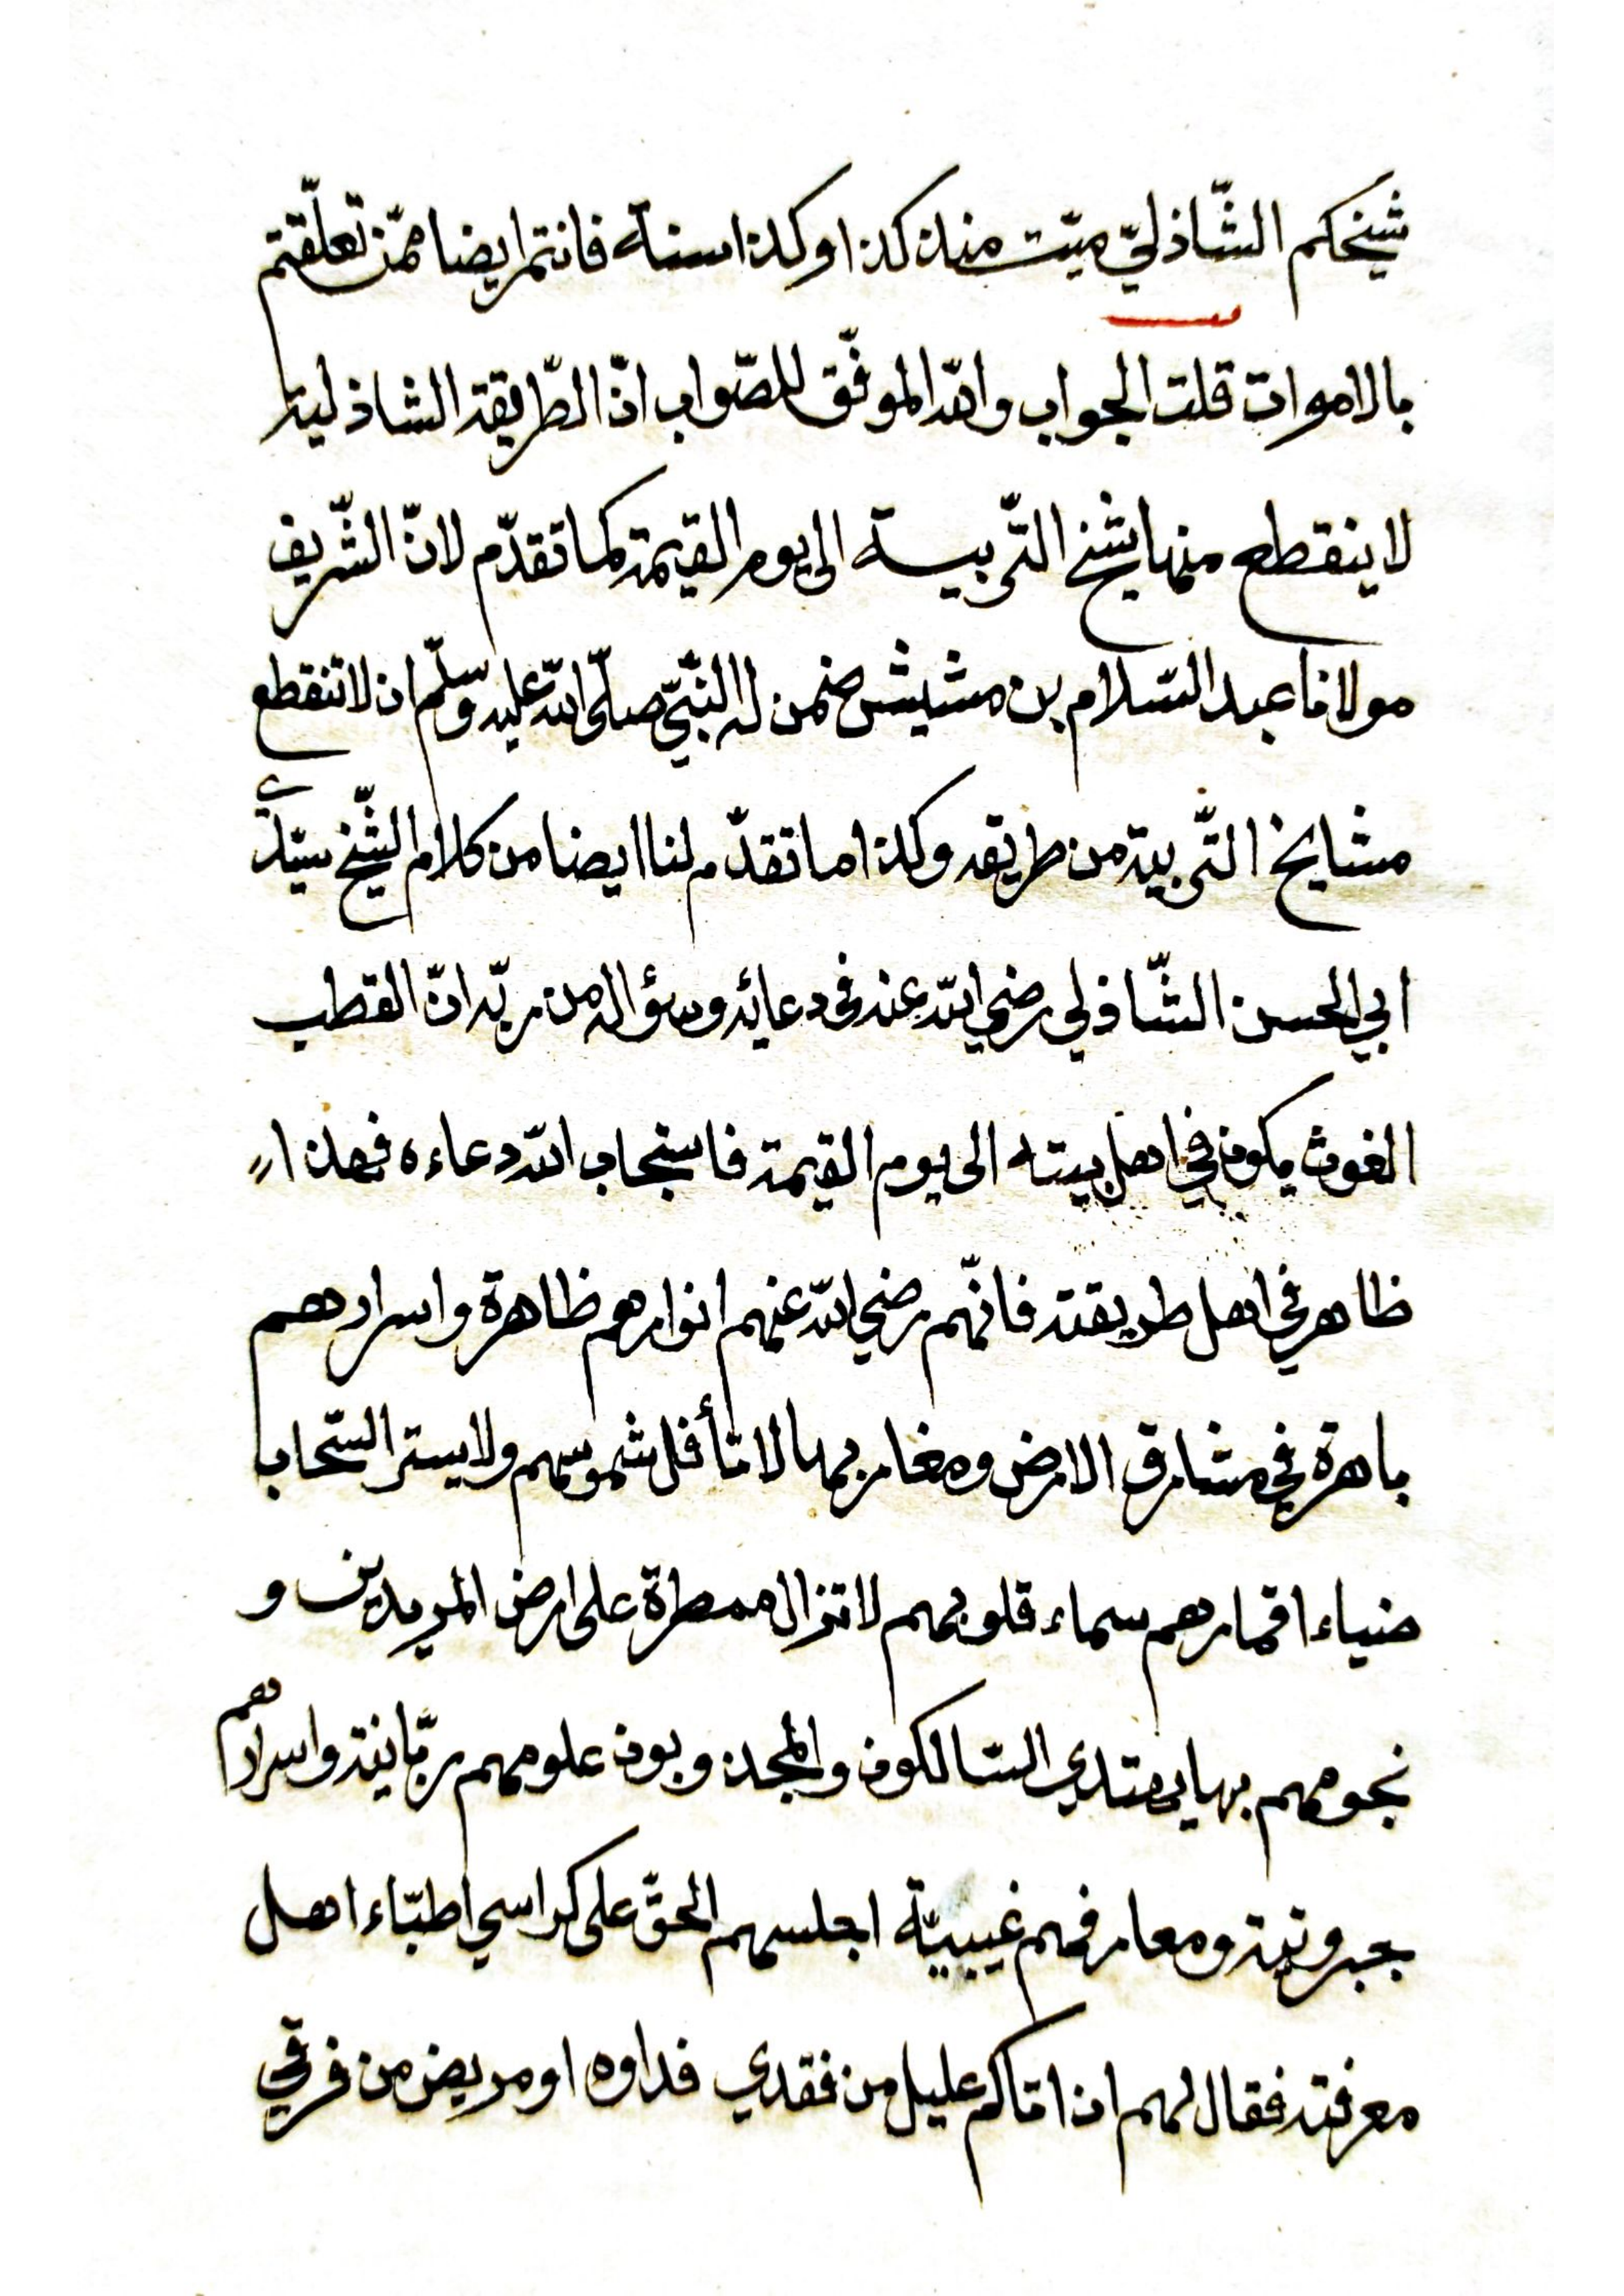 شيخكم الشّاذليّ ميّت منذ كذا وكذا سنة فانتم ايضا ممّن تعلّقتم
بالاموات قلت الجواب والله الموفّق للصّواب انّ الطّريقة الشاذلية
لا ينقطع منها شيخ التّربية الى يوم القيمة كما تقدّم لانّ الشّريف
مولانا عبد السّلام بن مشيش ضمن له النّبيّ صلّى الله عليه وسلّم ان لا تنقطع
مشايخ التّربية من طريقه وكذا ما تقدّم لنا ايضا من كلام الشّيخ سيّدي
ابي الحسن الشّاذلي رضي الله عنه في دعائه وسؤاله من ربّه انّ القطب
الغوث يكون في اهل بيته الى يوم القيمة فاستجاب الله دعاءه فهذا
ظاهر في اهل طريقته فانّهم رضي الله عنهم انوارهم ظاهرة واسرارهم
باهرة في مشارق الارض ومغاربها لا تأفل شموسهم ولا يستر السّحاب
ضياء اقمارهم سماء قلوبهم لا تزال ممطرة على ارض المريدين و
نجومهم بها يهتدي السّالكون والمجذوبون علومهم ربّانية واسرارهم
جبروتية ومعارفهم غيبيّة اجلسهم الحقّ على كراسي اطبّاء اهل
معرفته فقال لهم اذا اتاكم عليل من فقدي فداوه او مريض من فرقي